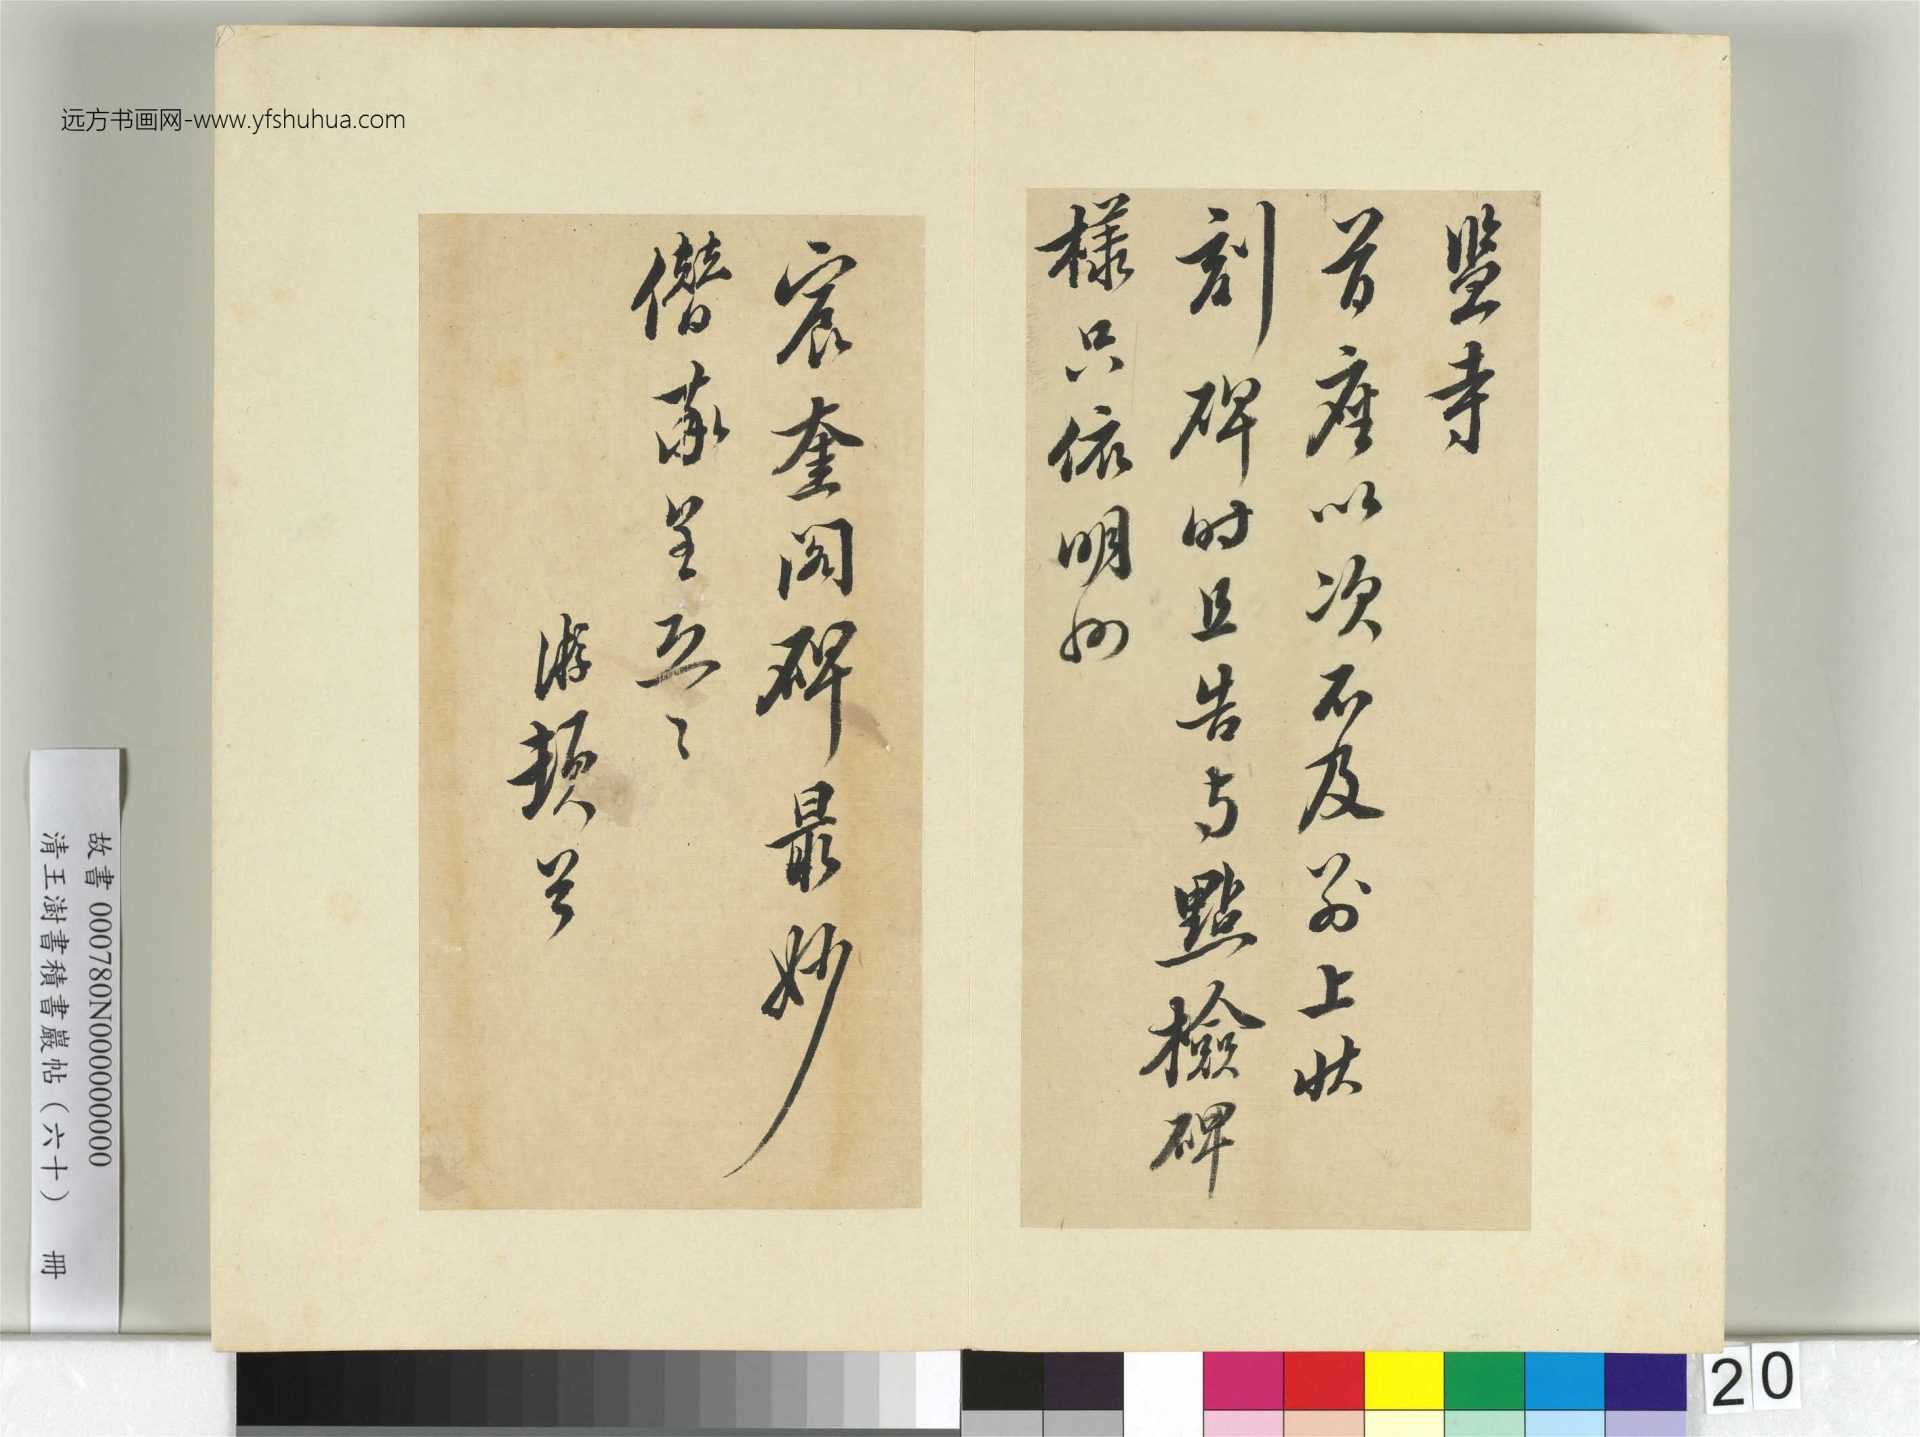 远方书画网-www.yfshuhua.com
監寺
首座以次不及别上狀
刻碑时且告与點檢碑
樣只依明州
宸奎阁碑最妙
僭率皇恐〻〻
游頓首
故書 000780N000000000
清王澍書積書巖帖（六十） 冊
20